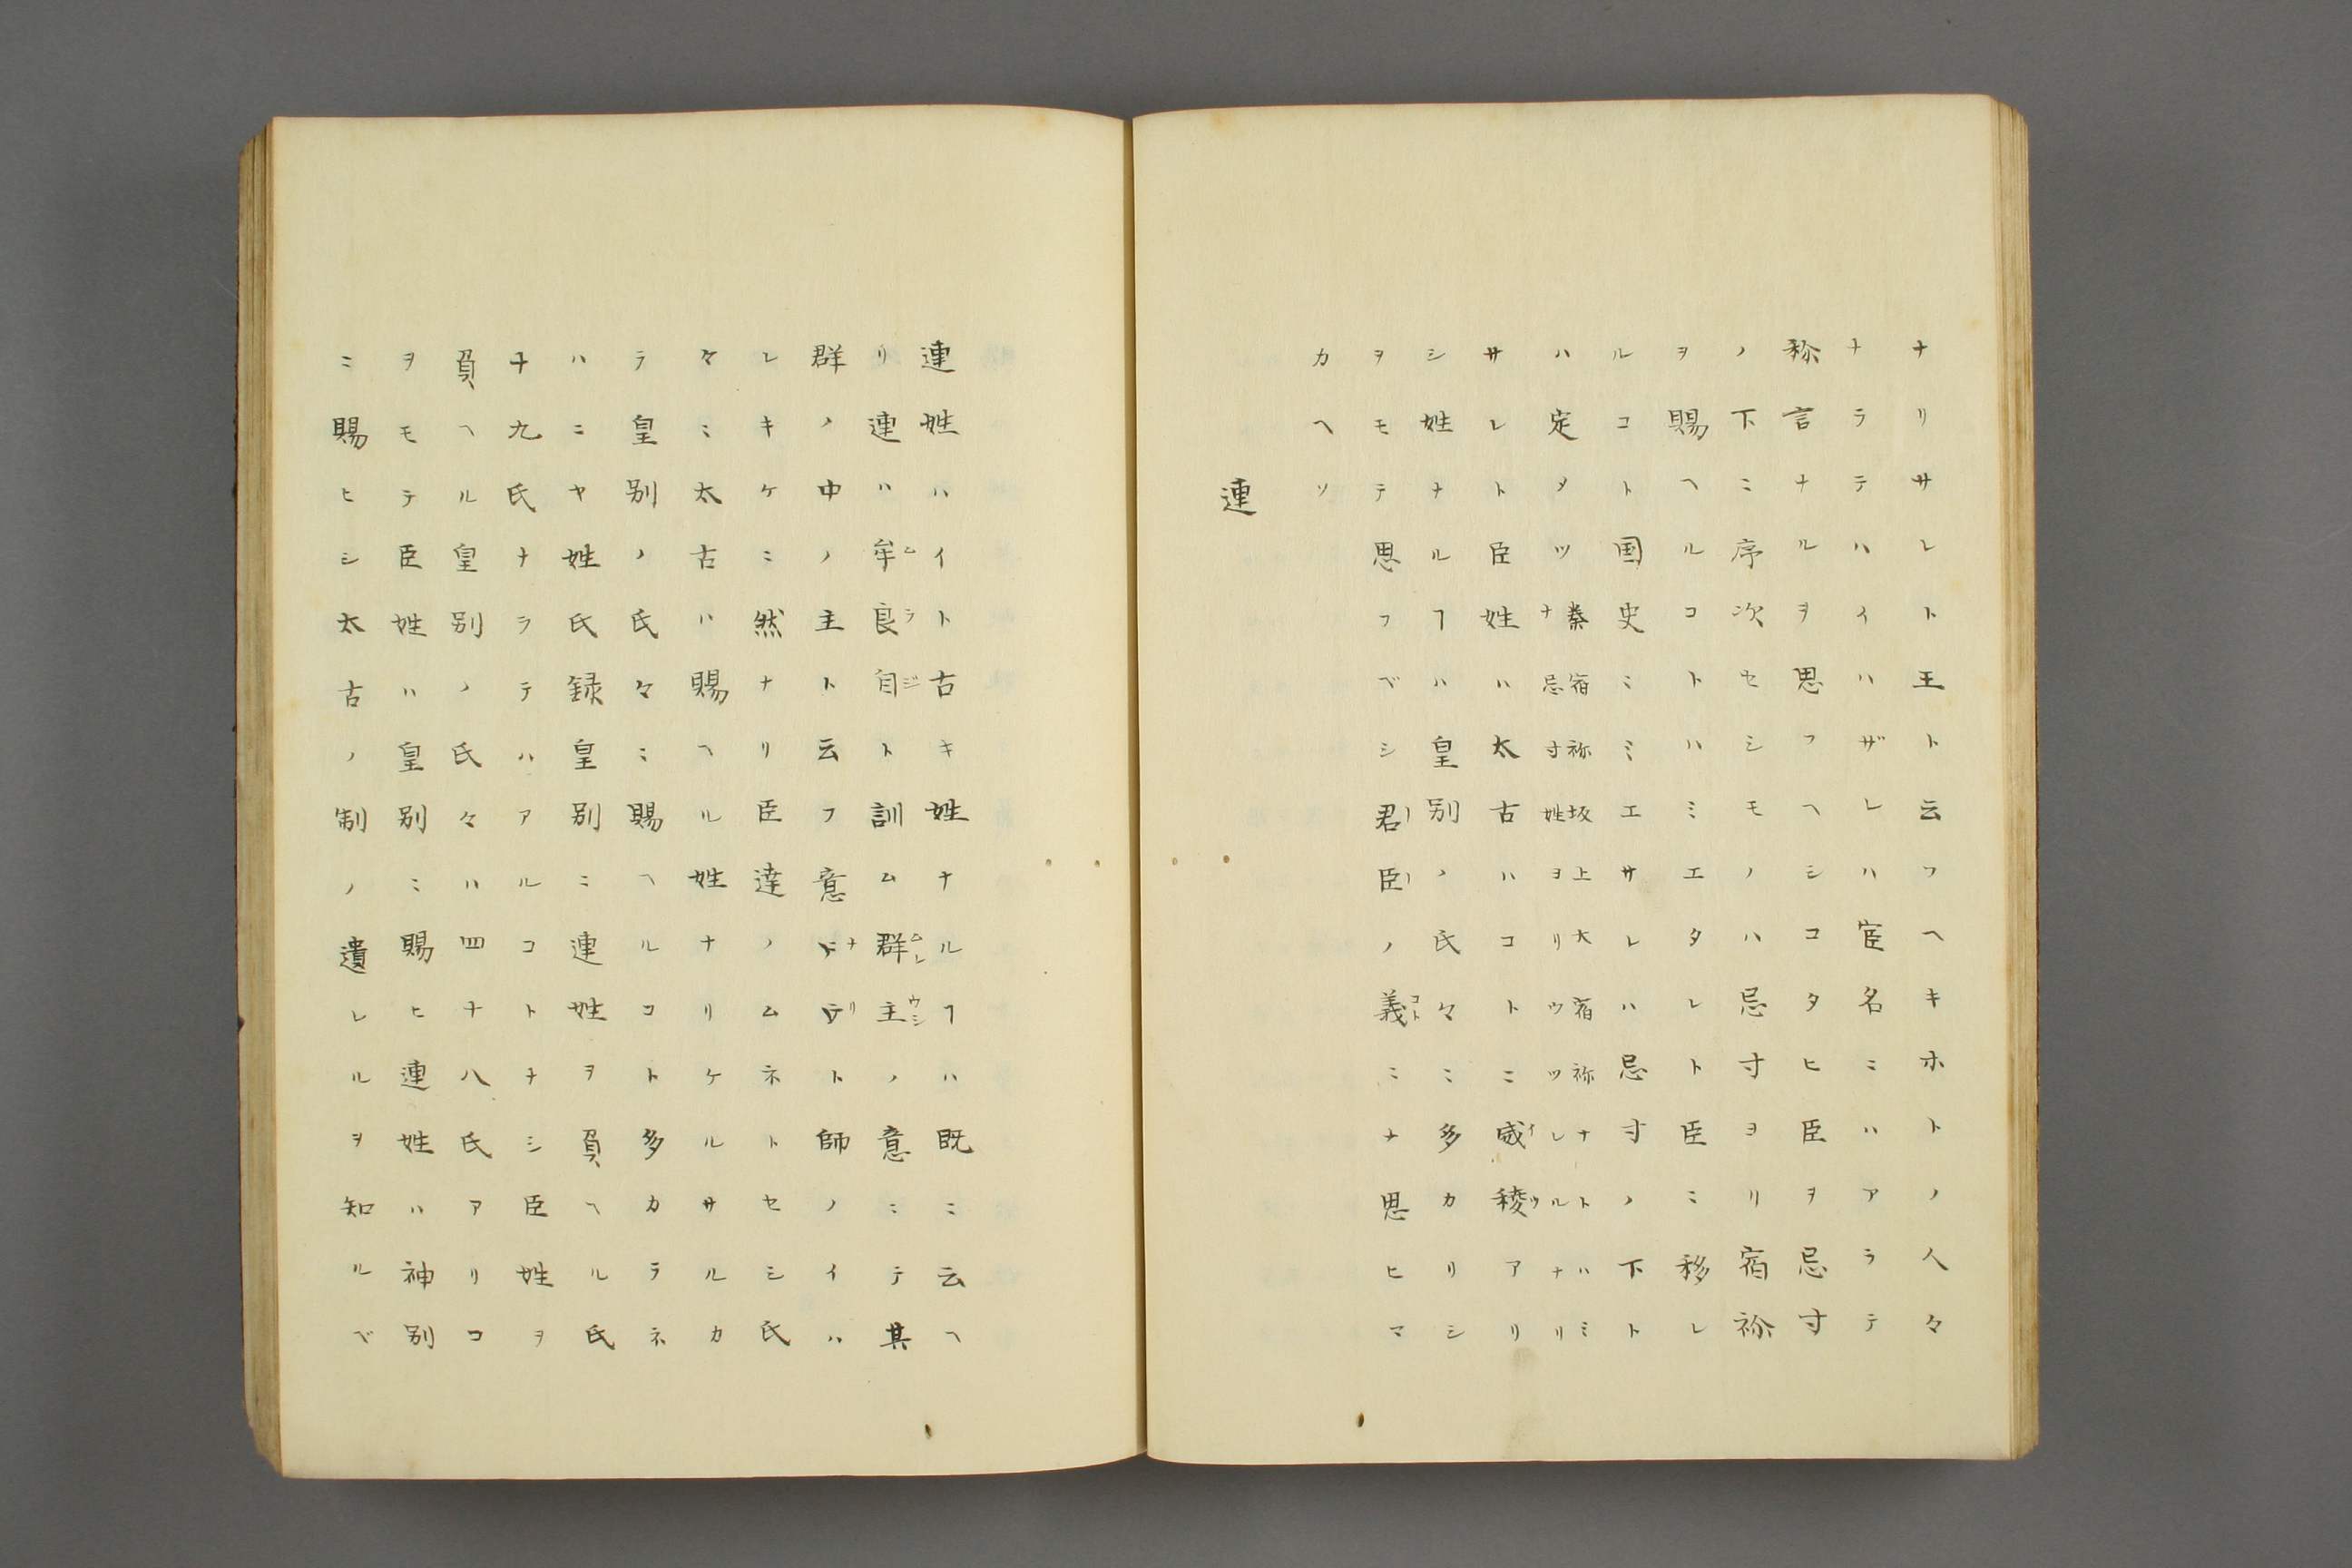 ナリサレト王ト云フヘキホトノ人々
ナラテハイハザレハ宦名ニハアラテ
称言ナルヲ思フヘシコタヒ臣ヲ忌寸
ノ下ニ序次セシモノハ忌寸ヨリ宿祢
ヲ賜ヘルコトハミエタレト臣ニ移レ
ルコト国史ニミエサレハ忌寸ノ下ト
ハ定メツ秦宿祢坂上大宿祢ナトハミナ忌寸姓ヲリウツレルナリ
サレト臣姓ハ太古ハコトニ威稜アリ
シ姓ナルヿハ皇別ノ氏々ニ多カリシ
ヲモテ思フベシ君臣ノ義ニナ思ヒマ
カヘソ
連
連姓ハイト古キ姓ナルヿハ既ニ云ヘ
リ連ハ牟良自ト訓ム群主ノ意ニテ其
群ノ中ノ主ト云フ意ナリト師ノイハ
レキケニ然ナリ臣達ノムネトセシ氏
々ニ太古ハ賜ヘル姓ナリケルサルカ
ラ皇別ノ氏々ニ賜ヘルコト多カラネ
ハニヤ姓氏録皇別ニ連姓ヲ負ヘル氏
十九氏ナラテハアルコトナシ臣姓ヲ
負ヘル皇別ノ氏々ハ四十八氏アリコ
ヲモテ臣姓ハ皇別ニ賜ヒ連姓ハ神別
ニ賜ヒシ太古ノ制ノ遺レルヲ知ルベ